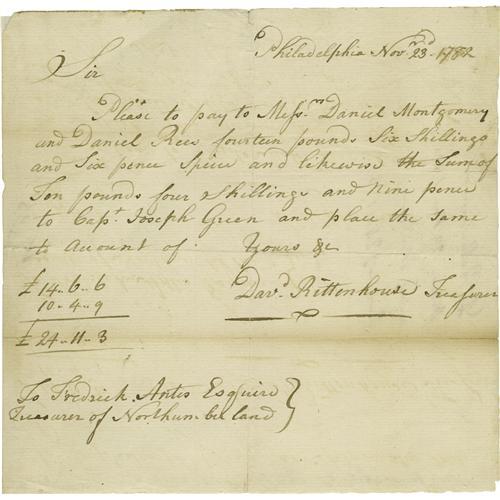 Philadelphia Novr. 23d. 1782
Sir
Please to pay to Messrs. Daniel Montgomery
and Daniel Rees fourteen pounds Six Shillings
and Six pence Specie and likewise the Sum of
Ten pounds four Shillings and Nine pence
to Capt. Joseph Green and place the same
to Account of Yours &c
£ 14..6..6
10..4..9
£ 24..11..3
Davd. Rittenhouse Treasurer
To Fredrick Antes Esquire
Treasurer of Northumberland